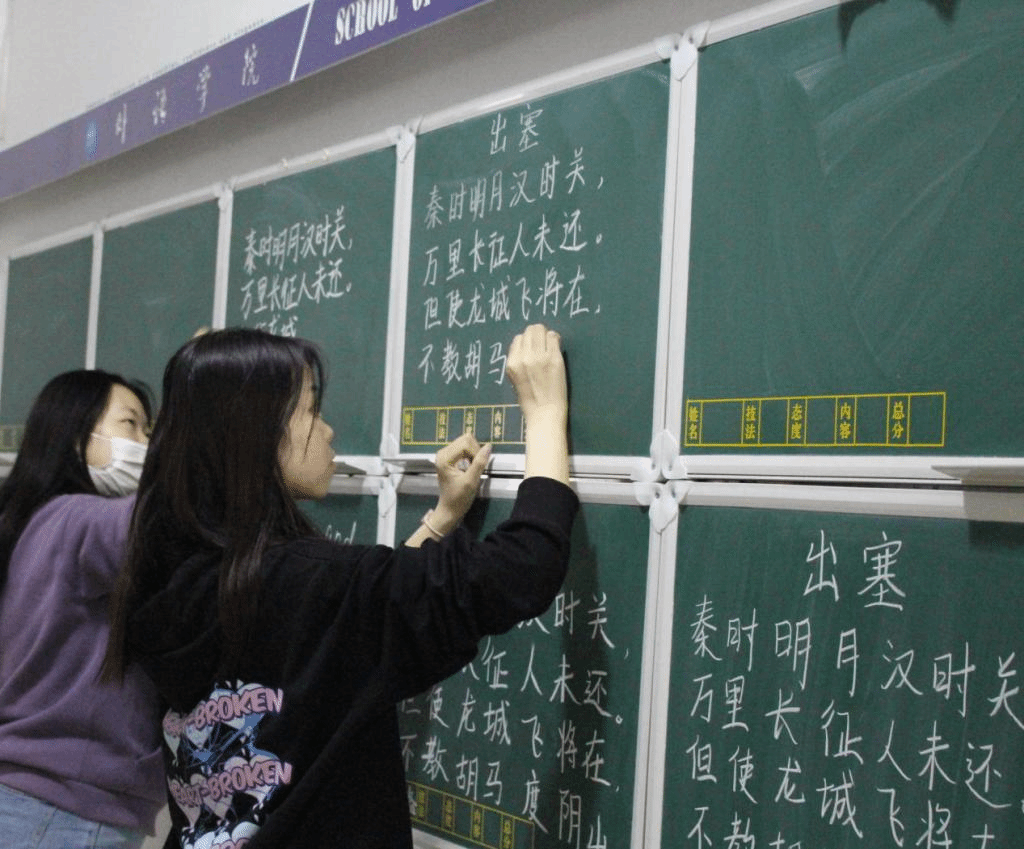 SCHOOL OF
外语学院
秦时明月汉时关，
万里长征人未还。
龙城
出塞
秦时明月汉时关，
万里长征人未还。
但使龙城飞将在，
不教胡马
姓名 技法 态度 内容
姓名 技法 态度 内容 总分
时关，
征人未还。
但使龙城飞将在，
不教胡马度阴山
技法 态度 内容 总分
出塞
秦时明月汉时关
万里长征人未还
但使龙城飞将
不教
BROKEN
HEART-BROKEN